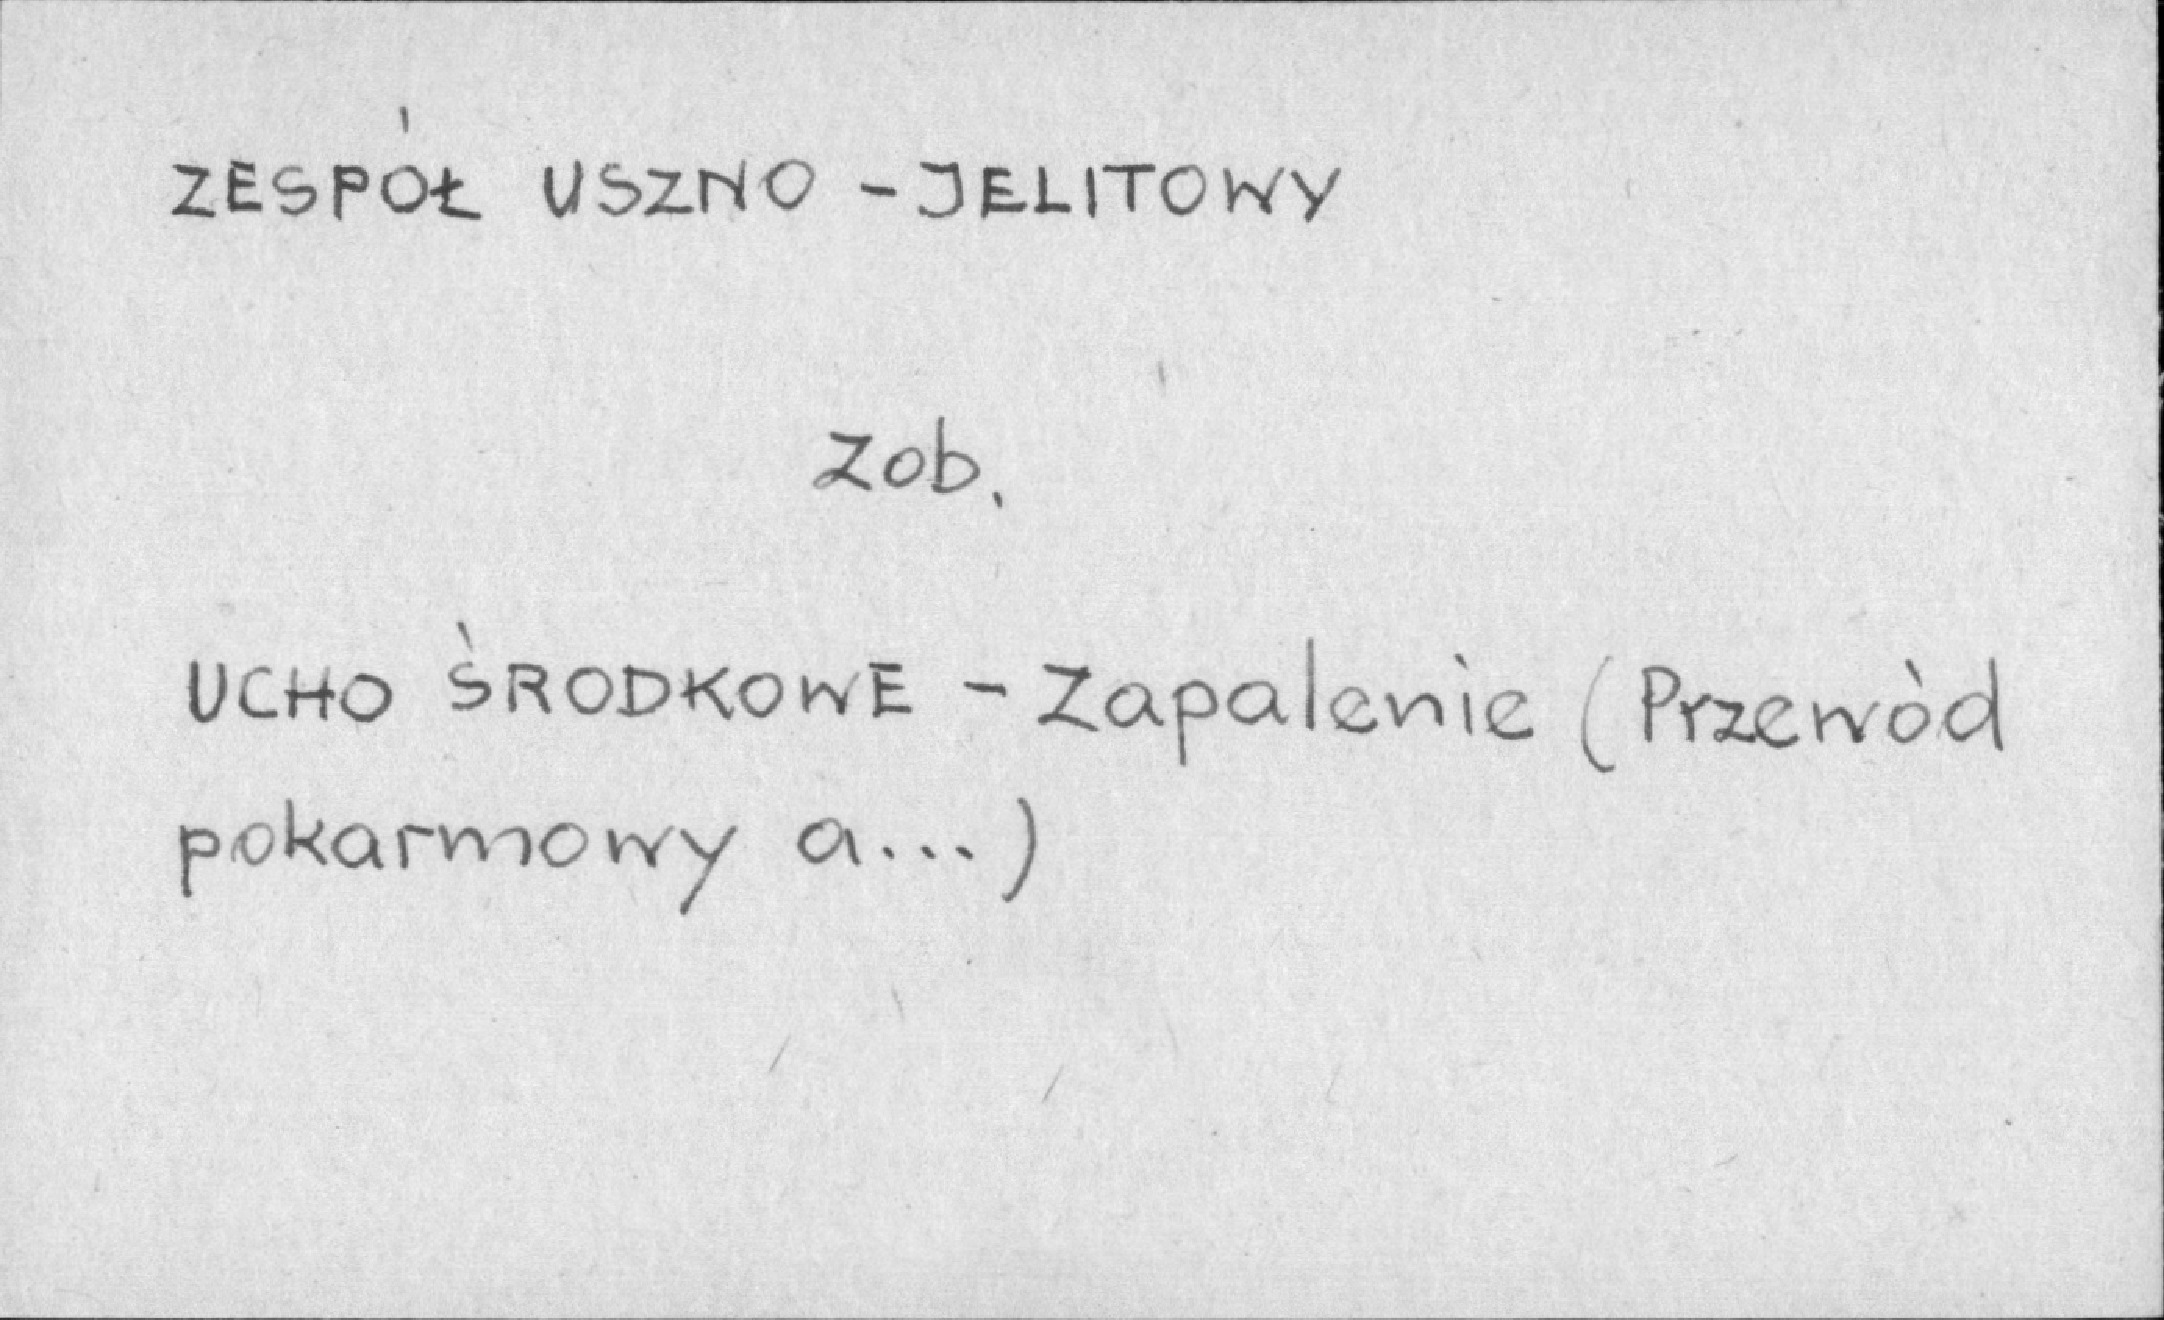 ZESPÓŁ USZNO - JELITOWY
Zob.
UCHO ŚRODKOWE - Zapalenie (Przewód
pokarmowy a...)